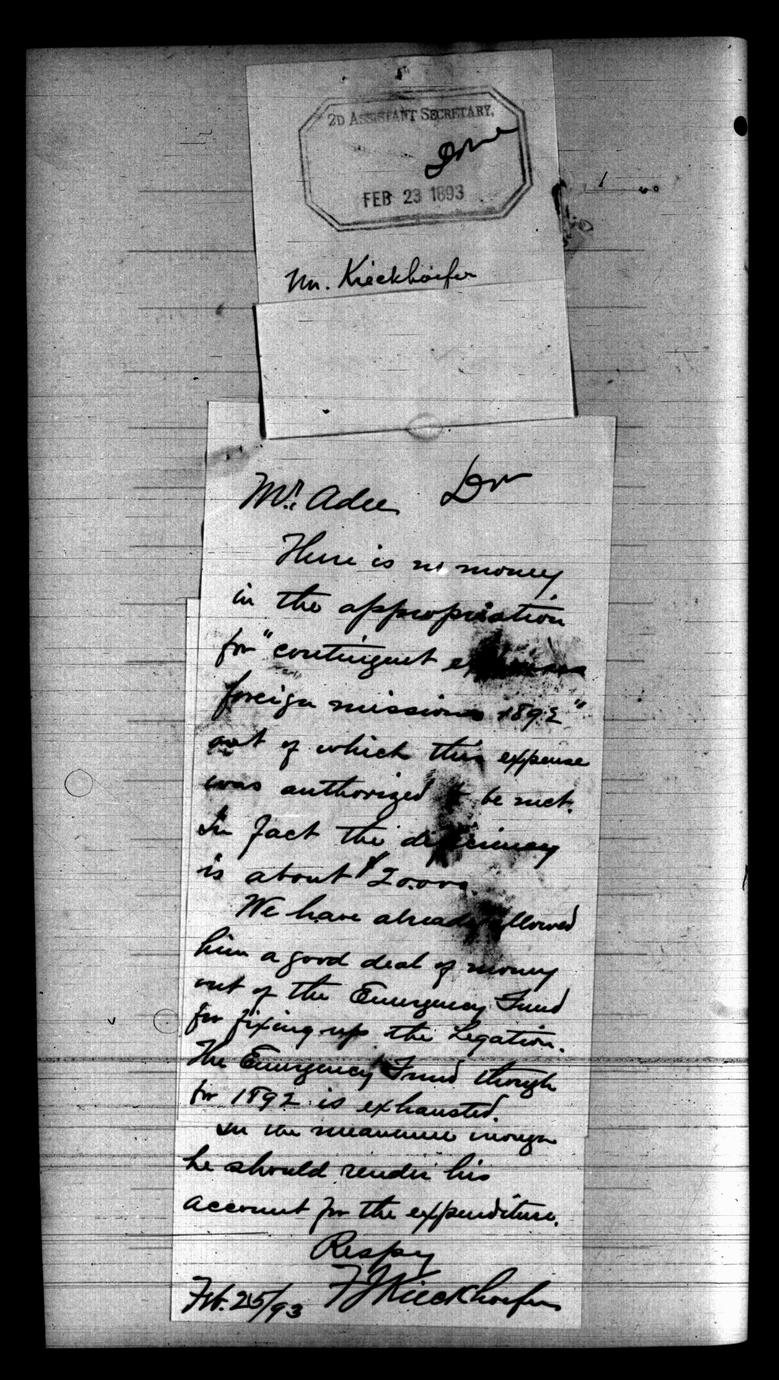 2D ASSISTANT SECRETARY,
FEB 23 1893
Mr. Kieckhoefer
Mr. Adee
There is no money
in the appropriation
for "contingent expenses
foreign missions 1892"
out of which this expense
was authorized to be met.
In fact the deficiency
is about
We have already allowed
him a good deal of money
out of the Emergency Fund
for fixing up the Legation.
The Emergency Fund though
for 1892 is exhausted.
In the meantime though
he should render his
account for the expenditure.
Respy
F J Kieckhoefer
Feb. 25/93